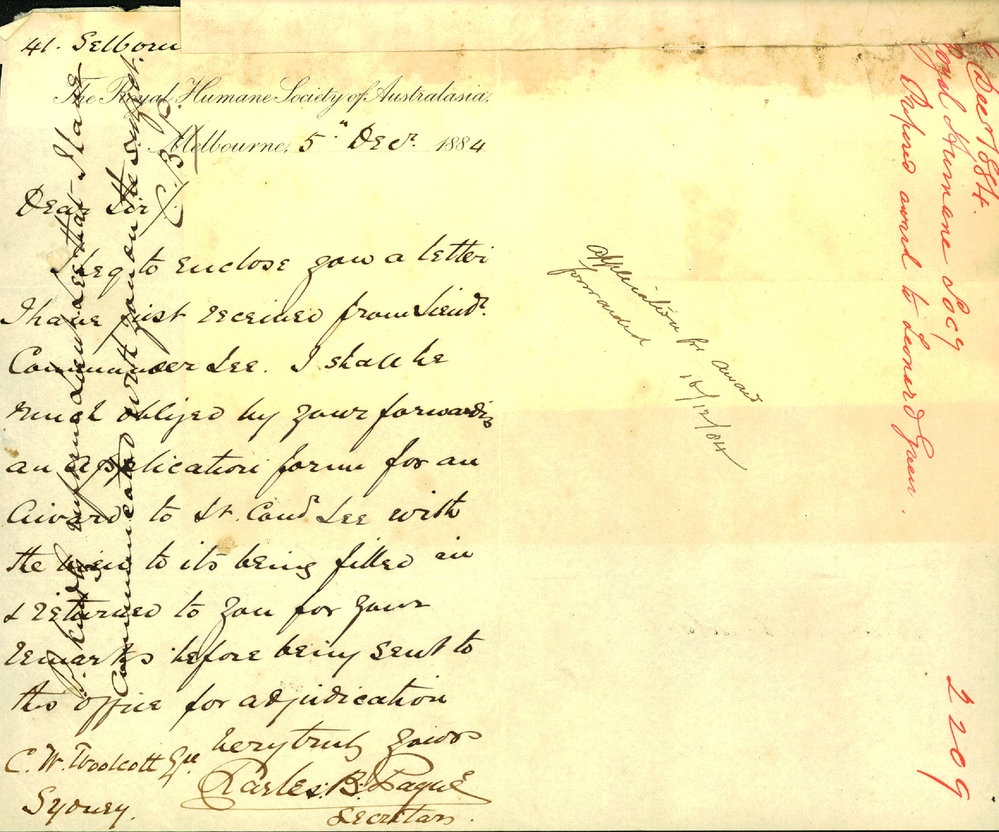 41. Selborn
The Royal Humane Society of Australasia,
Melbourne, 5th Decr. 1884
Dear Sir
I beg to enclose you a letter
I have just received from Lieut.
Commander Lee. I shall be
much obliged by your forwardg
an application form for an
award to Lt. Comdr Lee with
the view to its being filled in
& returned to you for your
remarks before being sent to
this office for adjudication
Very truly yours
Charles. B. Pagué
Secretary
C. W. Woolcott Esqre
Sydney.
kindly inform Lieut Lee that I have
communicated with you on the subject.
C. B. P.
application for award
forwarded
16/12/84
Dec 1884.
Royal Humane Socy
Proposed award to Leonard Green.
2209